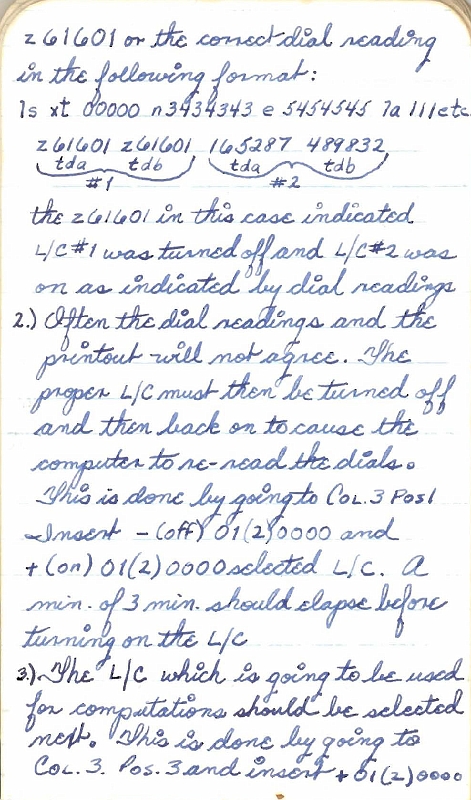 z61601 or the correct dial reading
in the following format:
1s xt 00000 n3434343 e 5454545 7a 111etc
z61601 z61601 165287 489832
tda tdb tda tdb
#1 #2
the z61601 in this case indicated
L/C#1 was turned off and L/C#2 was
on as indicated by dial readings
2.) Often the dial readings and the
printout will not agree. The
proper L/C must then be turned off
and then back on to cause the
computer to re-read the dials.
This is done by going to COL. 3 POS 1
Insert - (off) 01(2)0000 and
+ (on) 01(2)0000 selected L/C. A
min. of 3 min. should elapse before
turning on the L/C
3.) The L/C which is going to be used
for computations should be selected
next. This is done by going to
COL. 3. Pos. 3 and insert + 01(2)0000